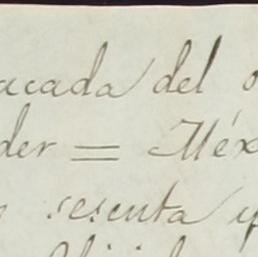 acada del
der = Méx
sesenta y